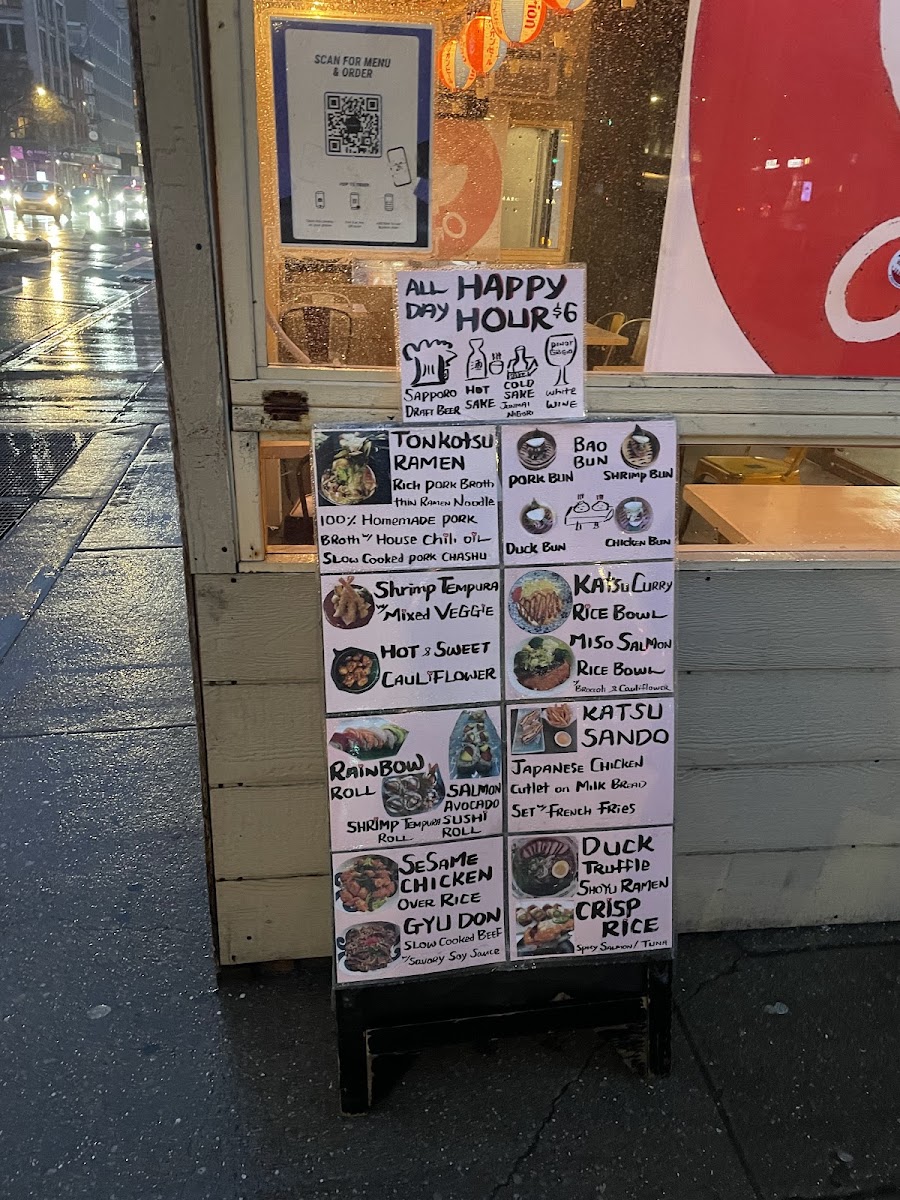 SCAN FOR MENU
& ORDER
ALL DAY HAPPY HOUR $6
SAPPORO
DRAFT BEER
HOT
SAKE
COLD
SAKE
JUNMAI
NIGORI
PINOT
GRIGIO
WHITE
WINE
TONKOTSU
RAMEN
RICH PORK BROTH
THIN RAMEN NOODLE
100% HOMEMADE PORK
BROTH W/ HOUSE CHILI OIL
SLOW COOKED PORK CHASHU
BAO
BUN
PORK BUN
SHRIMP BUN
DUCK BUN
CHICKEN BUN
SHRIMP TEMPURA
W/ MIXED VEGGIE
HOT & SWEET
CAULIFLOWER
KATSU CURRY
RICE BOWL
MISO SALMON
RICE BOWL
W/ BROCCOLI & CAULIFLOWER
RAINBOW
ROLL
SALMON
AVOCADO
SUSHI
ROLL
SHRIMP TEMPURA
ROLL
KATSU
SANDO
JAPANESE CHICKEN
CUTLET ON MILK BREAD
SET W/ FRENCH FRIES
SESAME
CHICKEN
OVER RICE
GYU DON
SLOW COOKED BEEF
W/ SAVORY SOY SAUCE
DUCK
TRUFFLE
SHOYU RAMEN
CRISP
RICE
SPICY SALMON / TUNA